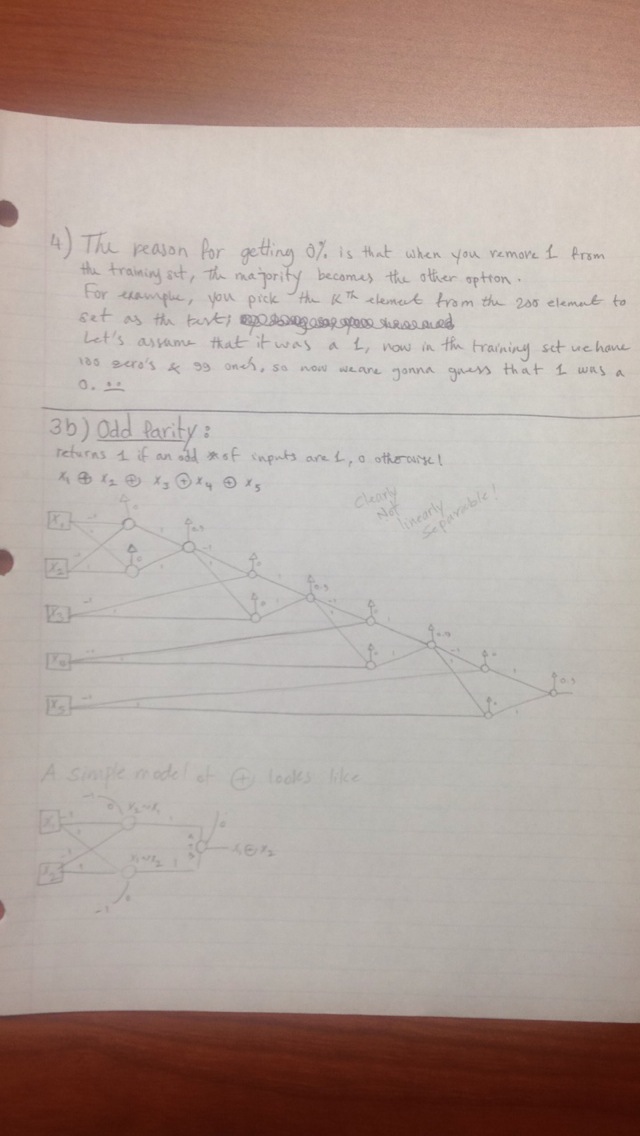 4) The reason for getting 0% is that when you remove 1 from
the training set, the majority becomes the other option.
For example, you pick the Kth element from the 200 element to
set as the test;
Let's assume that it was a 1, now in the training set we have
100 zero's & 99 ones, so now we are gonna guess that 1 was a
0. 
3b) Odd Parity:
returns 1 if an odd # of inputs are 1, 0 otherwise!
x1 ⊕ x2 ⊕ x3 ⊕ x4 ⊕ x5
Clearly
Not
linearly
Separable!
x1
x2
x3
x4
x5
-1
0
0.5
1
A simple model of ⊕ looks like
x1
x2
-1
0
x1 ⊕ x2